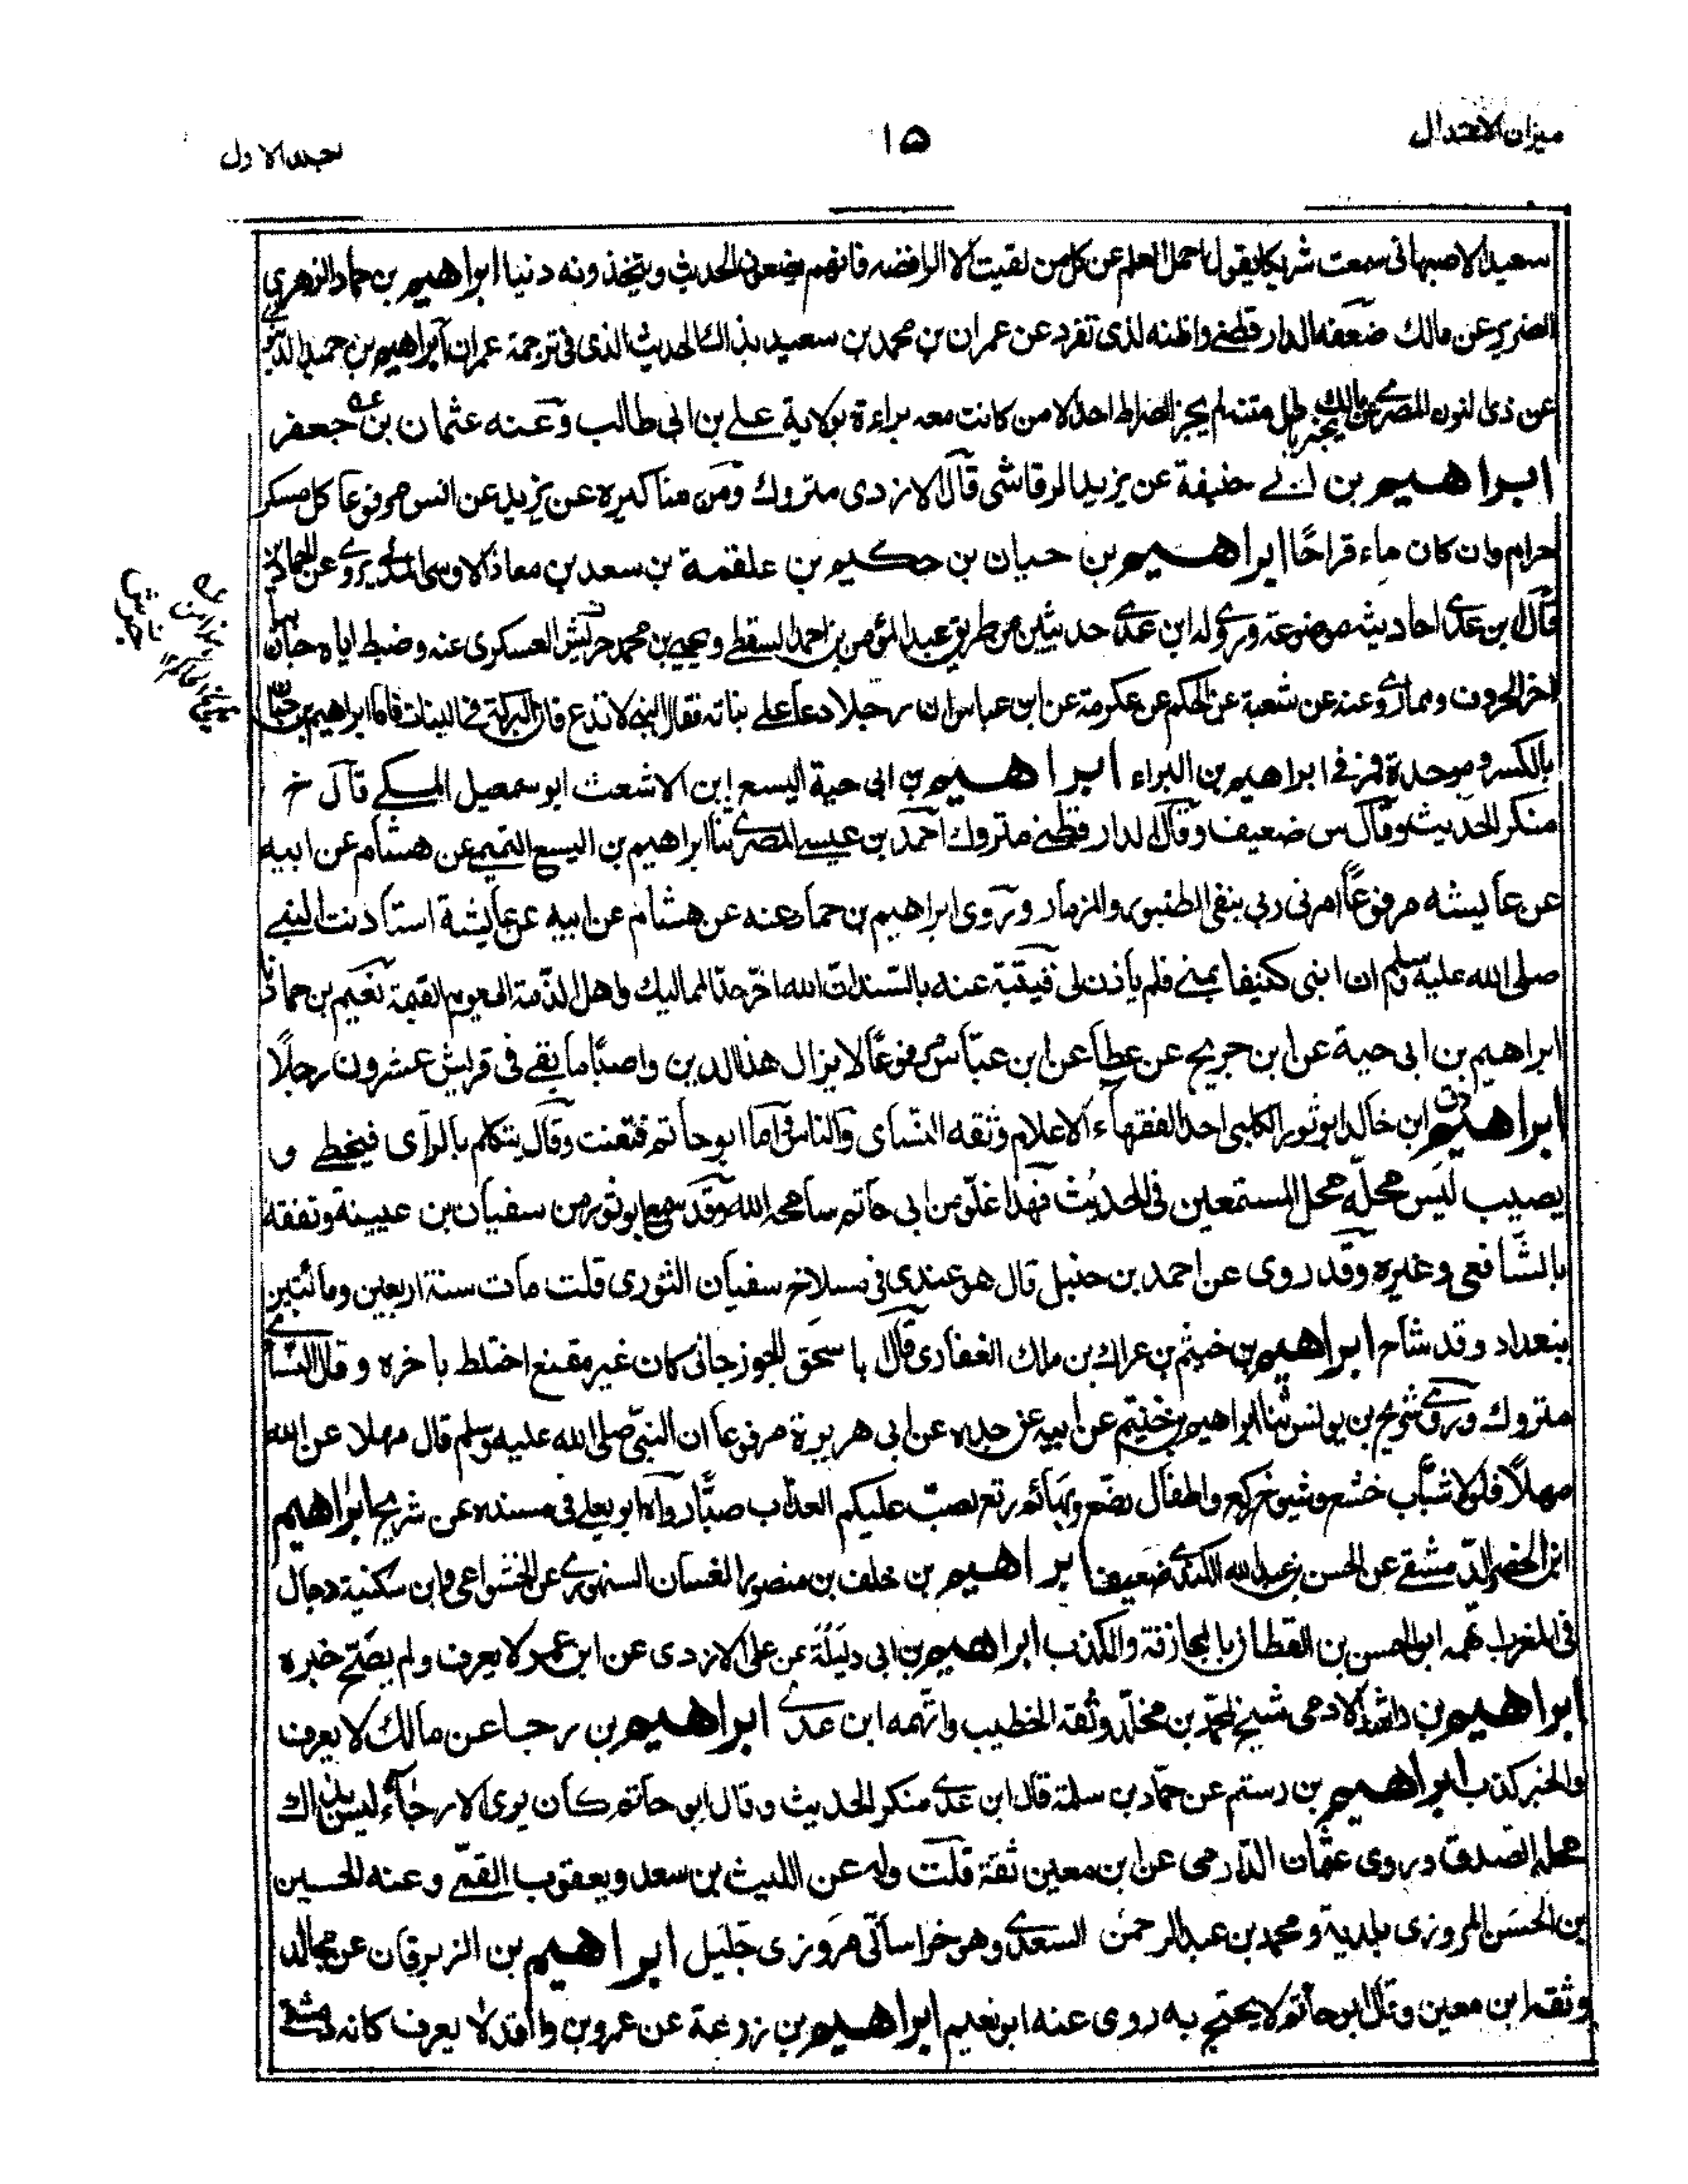 ميزان الاعتدال
١٥
جلد الاول
سعيد الاصبهانى سمعت شريكا يقول احمل العلم عن كل من لقيت الا الرافضه فانهم يضعون الحديث ويتخذونه دينا ابراهيم بن حماد الزهرى
الضرير عن مالك ضعفه الدارقطنے واظنه الذى تفرد عن عمران بن محمد بن سعيد بذاك الحديث الذى فى ترجمة عمران ابراهيم بن حميد الدينورے
عن ذى النون المصرے عن مالك بخبر باطل متنه لم يجز الصراط احد الا من كانت معه براءة بولاية علے بن ابى طالب وعنه عثمان بن جعفر
ابراهيم بن ابے حنيفة عن يزيد الرقاشى قال الازدى متروك ومن مناكيره عن يزيد عن انس مرفوعا كل مسكر
حرام وان كان ماء قراحًا ابراهيم بن حيان بن حكيم بن علقمة بن سعد بن معاذ الاوسى المدنے يروے عن الحمادين
قال ابن عدے احاديثه موضوعة وروے له ابن عدے حديثين من طريق عبد المؤمن بن احمد السقطے ويحيے بن محمد حريش العسكرى عنه وضبط اباه حيان بيا
اخر الحروف ومما روے عنه عن شعبة عن الحكم عن عكرمة عن ابن عباس ان رجلا دعا علے بناته فقال النبے لا تدع فان البركة فے البنات فاما ابراهيم بن حبان
بالكسر وموحدة فمر فے ابراهيم بن البراء ابراهيم بن ابى حية اليسع ابن الاشعث ابو سمعيل المكے قال خ
منكر الحديث وقال س ضعيف وقال الدارقطنے متروك احمد بن عيسے المصرے ثنا ابراهيم بن اليسع التميمے عن هشام عن ابيه
عن عايشه مرفوعًا امرنى ربى بنفى الطنبور والمزمار وروى ابراهيم بن حماد عنه عن هشام عن ابيه عن عايشة استاذنت النبے
صلى الله عليه وسلم ان ابنى كنيفا بمنے فلم ياذن لى قتيبة عنه بالسند ان الله اخر حد المماليك واهل الذمة الى يوم القيمة نعيم بن حماد ثنا
ابراهيم بن ابى حية عن ابن جريج عن عطا عن ابن عبّاس مرفوعًا لا يزال هذا الدين واصبًا ما بقے فى قريش عشرون رجلًا
ابراهيم ابن خالد ابو ثور الكلبى احد الفقهاء الاعلام وثقه النسّاى والناس واما ابو حاتم فتعنت وقال يتكلم بالرأى فيخطے و
يصيب ليس محلّه محل المستمعين فى الحديث فهذا غلو من ابى حاتم سامحه الله وقد سمع ابو ثور من سفيان بن عيينة وتفقه
بالشّافعى وغيره وقد روى عن احمد بن حنبل قال هو عندى فى مسلاخ سفيان الثورى قلت مات سنة اربعين ومائتين
ببغداد وقد شاخ ابراهيم بن خثيم بن عراك بن مالك الغفارى قال ابا سحق الجوزجانى كان غير مقنع اختلط باخره وقال النسائے
متروك وروے شريح بن يونس ثنا ابراهيم بن خثيم عن ابيه عن جده عن ابى هريرة مرفوعا ان النبىّ صلى الله عليه وسلم قال مهلا عن الله
مهلًا فلولا شبّاب خشع وشيوخ ركع واطفال رضّع وبهائم رتع لصبّ عليكم العذاب صبًّا رواه ابو يعلے فى مسنده عن شريح ابراهيم
ابن الخضر الدّمشقے عن الحسن بن عبد الله الكندے ضعيف ابراهيم بن خلف بن منصور الغسان السنهورے عن الخشوعى وابن سكنية دجال
فى المغرب اتهمه ابو الحسن بن القطان بالمجازفة والكذب ابراهيم بن ابى دليلة عن على الازدى عن ابن عمر لا يعرف ولم يصّح خبره
ابراهيم بن راشد الادمى شيخ لمحمد بن مخلّد وثقه الخطيب واتّهمه ابن عدے ابراهيم بن رجا عن مالك لا يعرف
والخبر كذب ابراهيم بن رستم عن حمّاد بن سلمة قال ابن عدے منكر الحديث وقال ابو حاتم كان يرى الارجاء ليس بذاك
محله الصدق وروى عثمان الدّارمى عن ابن معين ثقة قلت وله عن الليث بن سعد ويعقوب القمّے وعنه الحسين
بن الحسن المروزى بلديه ومحمد بن عبد الرحمن السعدے وهو خراسانى مروزى جليل ابراهيم بن الزبرقان عن مجالد
وثقه ابن معين وقال ابو حاتم لا يحتج به روى عنه ابو نعيم ابراهيم بن زرعة عن عمرو بن واقد لا يعرف كانه دمشقے